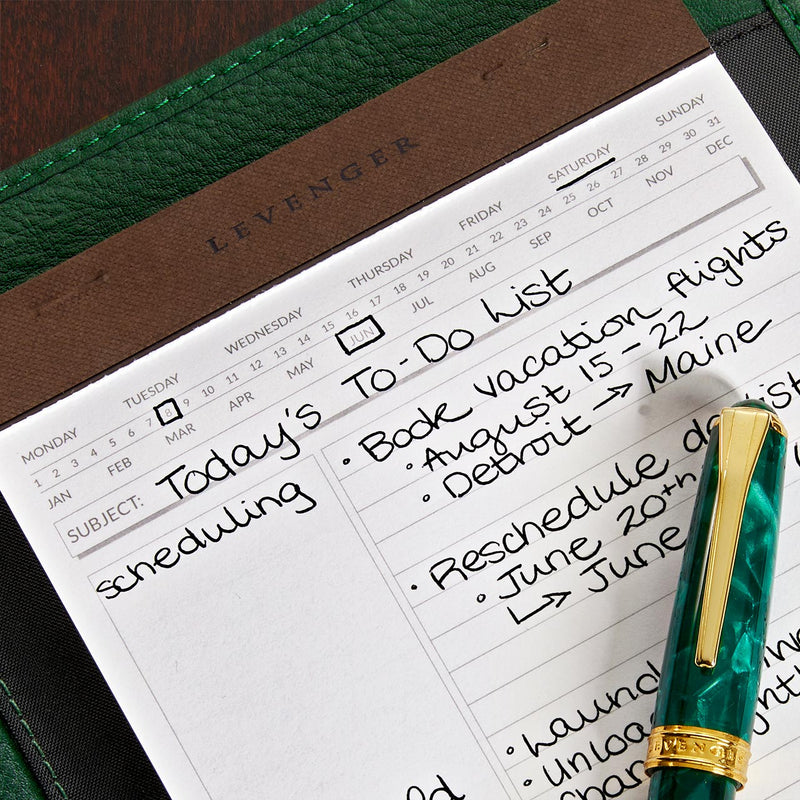 LEVENGER
MONDAY TUESDAY WEDNESDAY THURSDAY FRIDAY SATURDAY SUNDAY
1 2 3 4 5 6 7 8 9 10 11 12 13 14 15 16 17 18 19 20 21 22 23 24 25 26 27 28 29 30 31
JAN FEB MAR APR MAY JUN JUL AUG SEP OCT NOV DEC
SUBJECT: Today's To-Do List
scheduling
• Book vacation flights
• August 15-22
• Detroit → Maine
• Reschedule
• June 20th
↳ June
LEVENGER